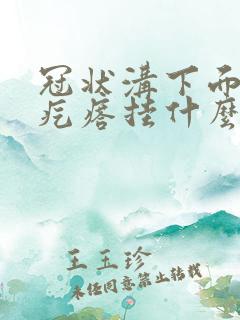 冠状溝下面
疙瘩挂什麼
王玉珍
未经同意禁止转载